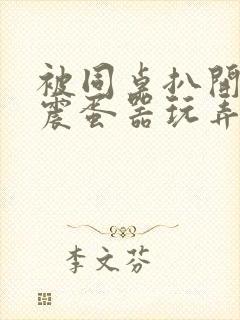 被同桌扒開
震蛋器玩弄
李文芬